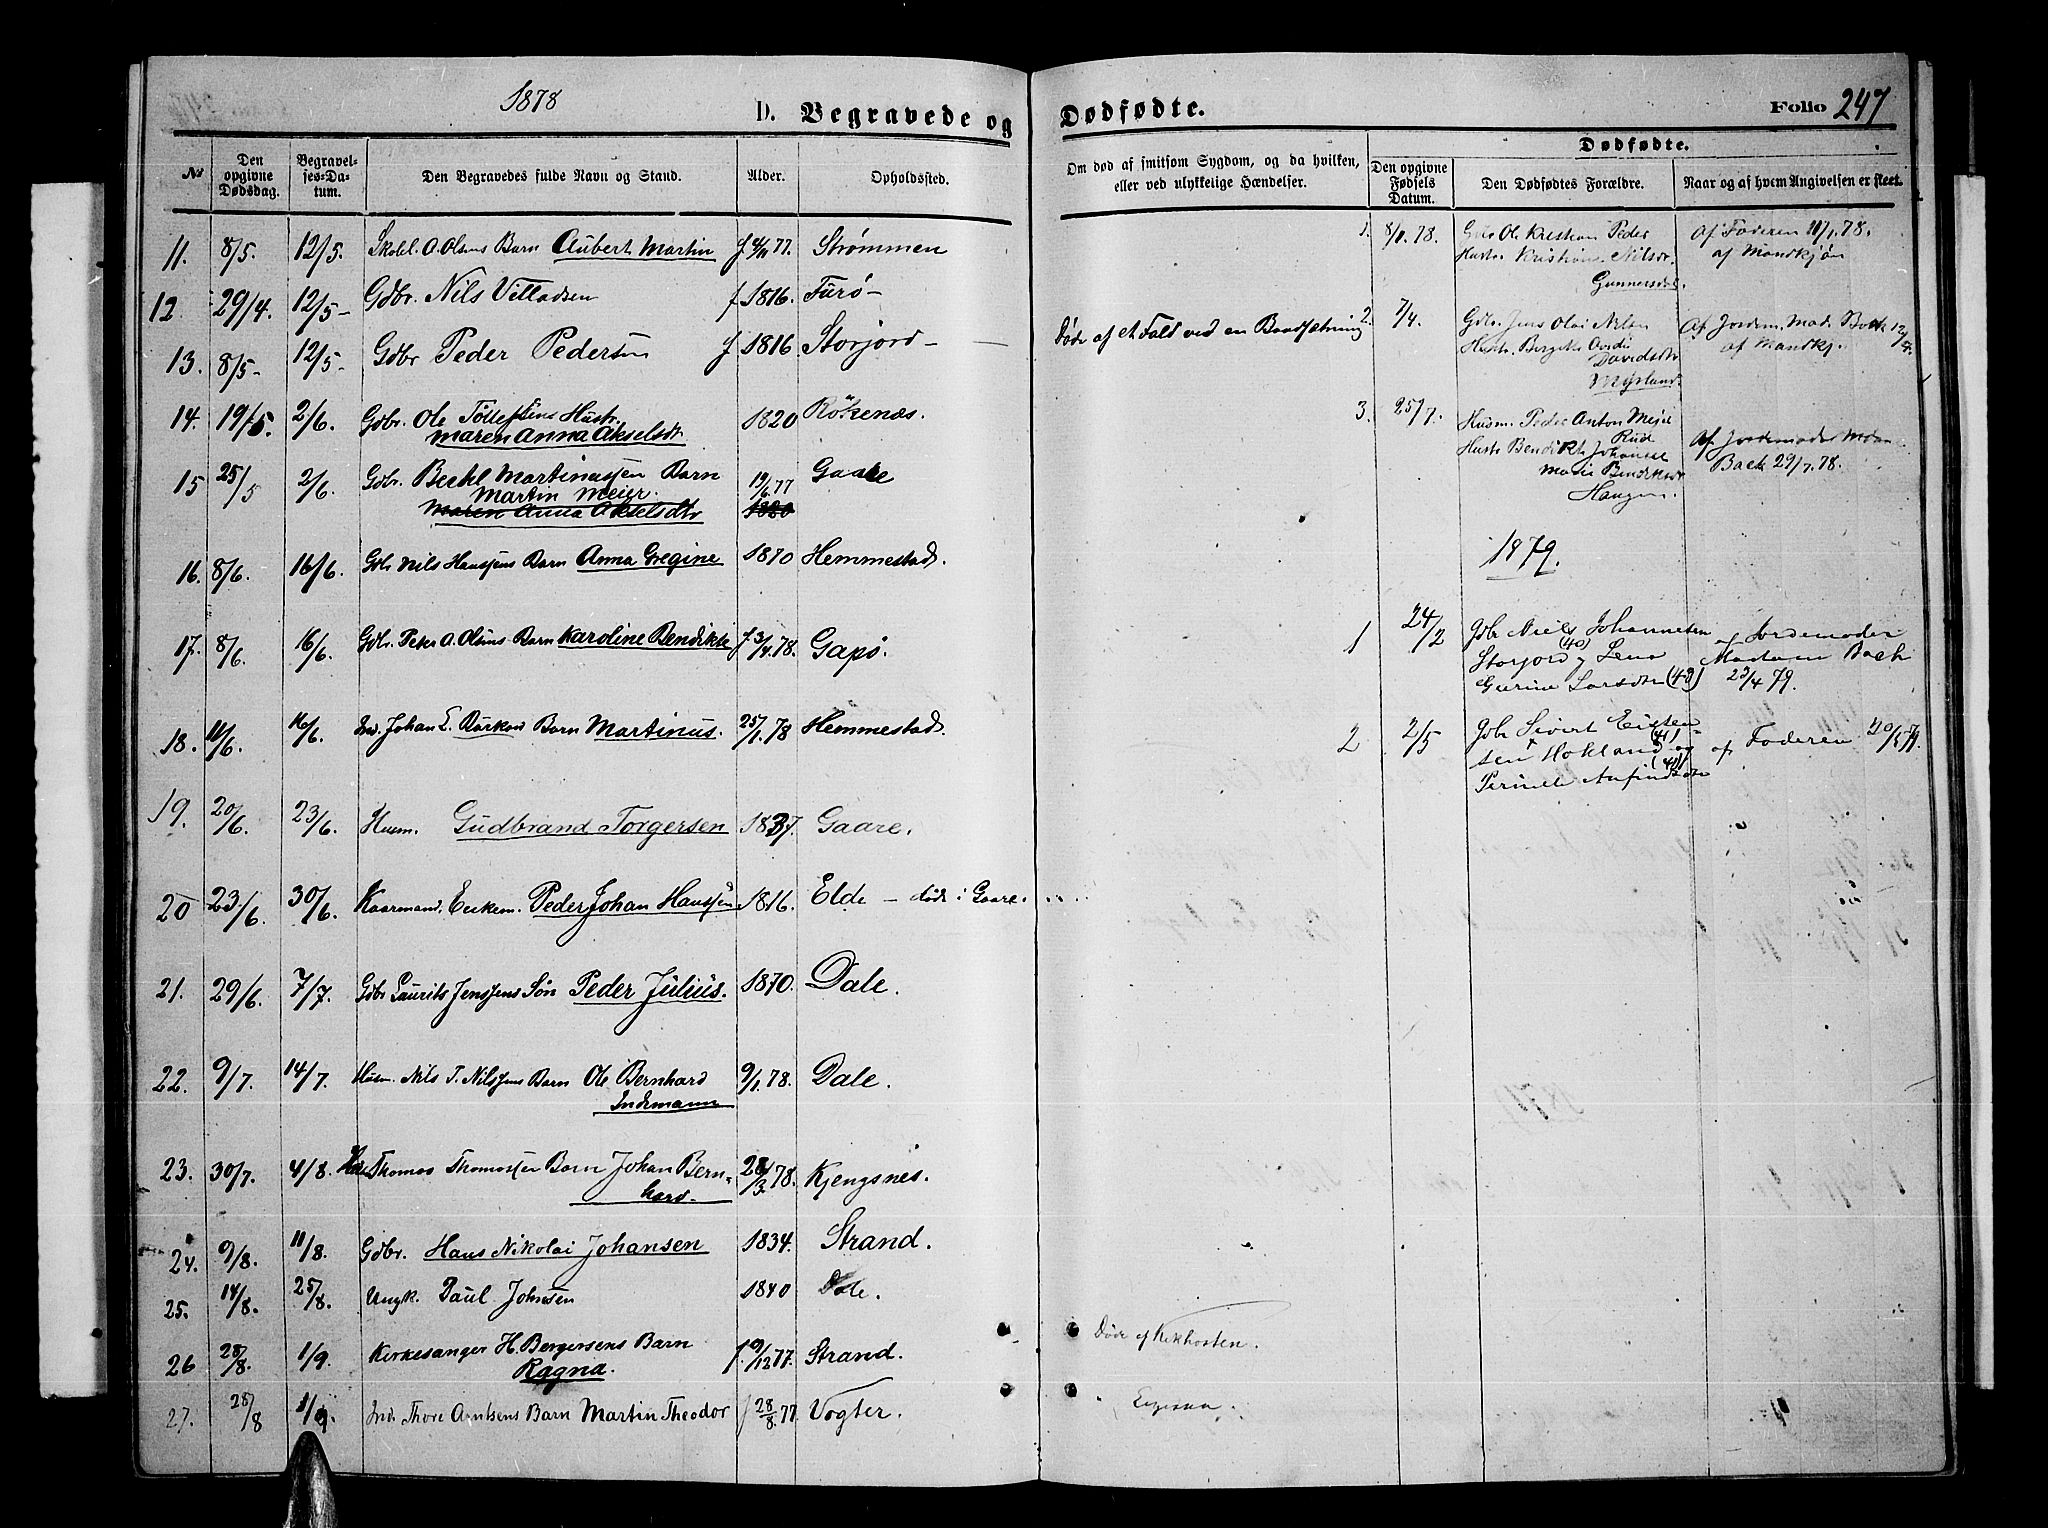 1878
D. Begravede og
Dødfødte.
Folio 247
No
Den opgivne Dødsdag.
Begravel-ses-Da-tum.
Den Begravedes fulde Navn og Stand.
Alder.
Opholdssted.
Om død af smitsom Sygdom, og da hvilken, eller ved ulykkelige Hændelser.
Dødfødte.
Den opgivne Fødsels Datum.
Den Dødfødtes Forældre.
Naar og af hvem Angivelsen er skeet.
11. 8/5. 12/5. A. Olsens Barn Aubert Martin f 4/11 77. Strømmen
12 29/4. 12/5- Gdbr. Nils f 1816. Furø-
13. 8/5- 12/5- Gdbr Peder Pedersen f 1816 Storjord-
Døde af et Fald ved en Baadsætning
14. 19/5. 2/6. Gdbr. Ole Hustr.
Maren Anna Akselsdtr 1820 Rökenæs.
15 25/5 2/6. Gdbr. Berthl Martinussen Barn
Martin Meier. 19/6 77 Gaare
Maren Anna Akselsdtr 1820
16. 8/6. 16/6. Gdbr Nils Hanssens Barn Anna Gregine 1870 Hemmestad.
17. 8/6. 16/6. Gdbr. Peter A. Olsens Barn Karoline Bendikte f 3/4 78. Gapø.
18. 11/6. 16/6. Ind. Johan L. Barn Martinus. 25/1. 78 Hemmestad.
19. 20/6. 23/6. Husm. Gudbrand Torgersen 1837. Gaare.
20 23/6. 30/6. Kaarmand, Enkem. Peder Johan Hanssen 1816. Elde - døde i Gaare.
21. 29/6. 7/7. Gdbr Laurits Jenssens Søn Peder Julius. 1870. Dale.
22. 9/7. 14/7. Husm. Nils T. Nilssens Barn Ole Bernhard
Indemann 9/1. 78. Dale.
23. 30/7. 4/8. Thomas Thomassen Barn Johan Bern-
hard. 28/3 78. Kjengsnes.
24. 9/8. 11/8. Gdbr. Hans Nikolai Johansen 1834. Strand.
25. 14/8. 25/8. Ungk. Paul Johnsen 1840 Dale.
26 28/8. 1/9. Kirkesanger H. Bergersens Barn
Ragna. f. 9/12 77. Strand. Døde af Kikhosten.
27. 28/8 1/9. Ind. Thore Arntsens Barn Martin Theodor f 28/8. 77 Vogter.
1. 8/1. 78. Gdbr Ole Kristian Peder
Hustr Kristiane Nilsdr.
Gunnersdal.
Af Faderen 11/1. 78.
af Mandkjøn
2. 7/4. Gdbr. Jens Olai Nilsen
Hustr.
Davidsdtr
Myrland.
Af Jordem. Mad. Back 12/4.
af Mandkj.
3. 25/7. Husm. Peder Anton Meier
Hustr Bendikte Johanne
Marie Bendiksdr
Haugen.
Af Jordemoder Madam
Back 29/7. 78.
1879.
1 24/2 Gdbr Niels Johannesen
Storjord (40) og Lena
Larsdtr (42)
af Jordemoder
Madam Back
23/4 79.
2 2/5 Gdbr Sivert Eisten
sen Hokland (41) og
(41)
af Faderen 20/5 79.